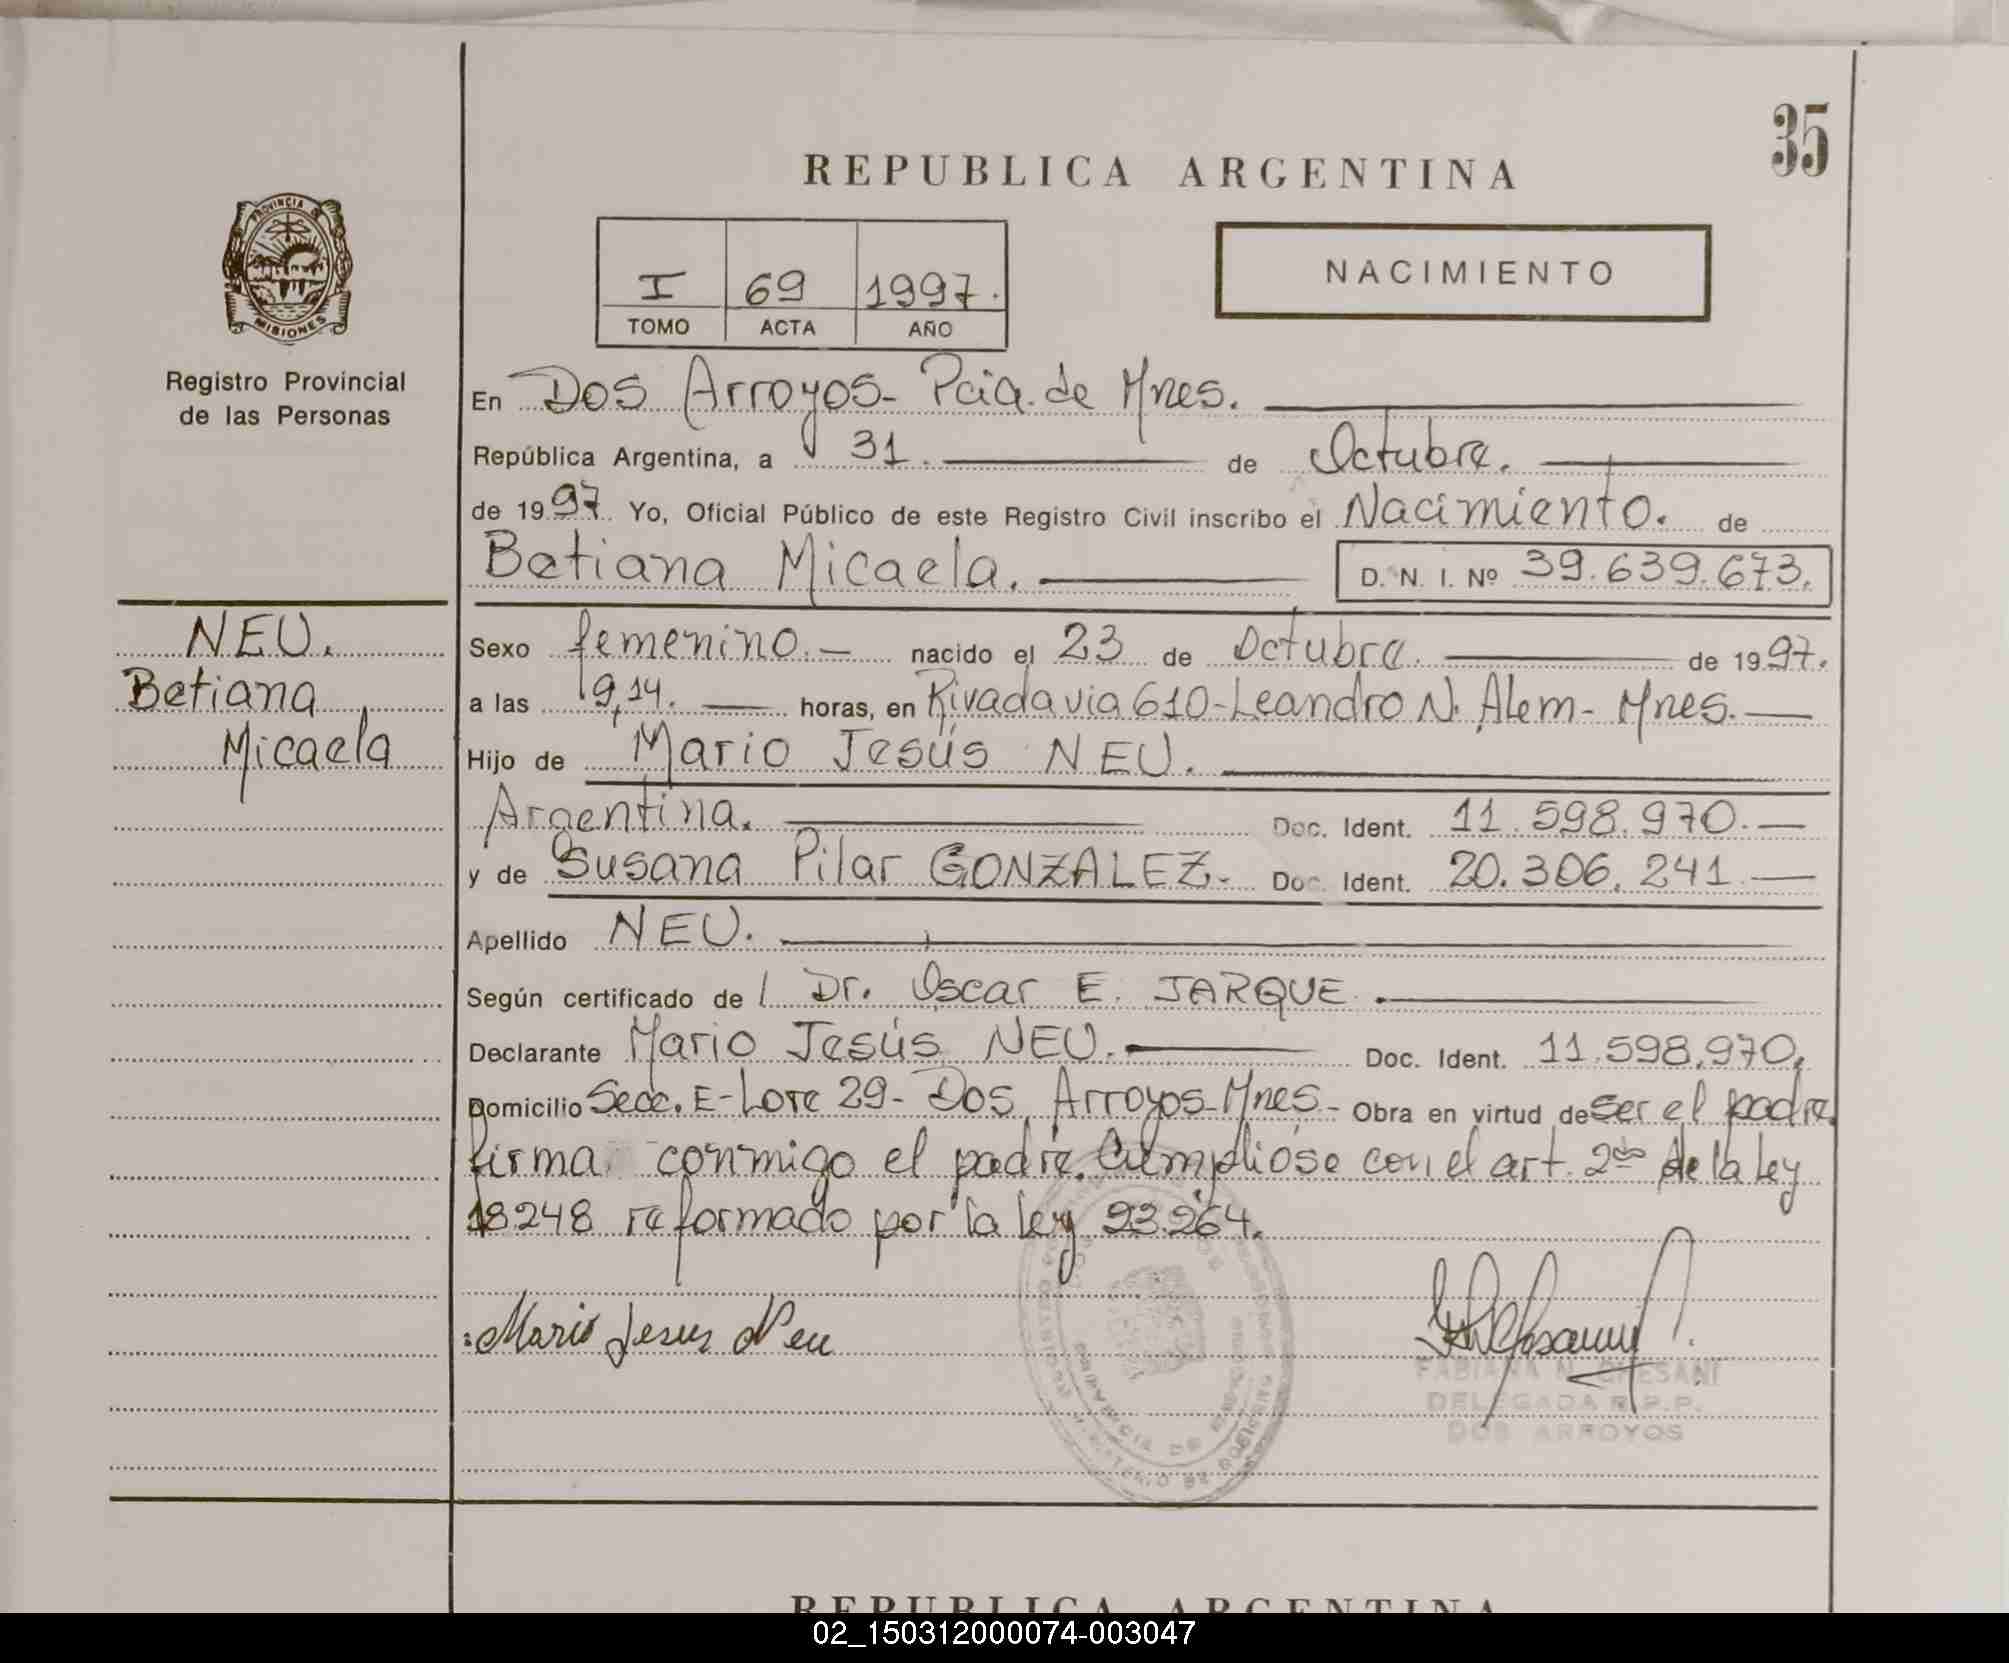 35
REPUBLICA ARGENTINA
PROVINCIA DE
MISIONES
Registro Provincial
de las Personas
I 69 1997.
TOMO ACTA AÑO
NACIMIENTO
En Dos Arroyos- Pcia. de Mnes.
República Argentina, a 31. de Octubre.
de 1997. Yo, Oficial Público de este Registro Civil inscribo el Nacimiento. de
Betiana Micaela. D. N. I. Nº 39.639.673.
NEU.
Betiana
Micaela
Sexo femenino.- nacido el 23 de Octubre. de 1997.
a las 19,14. horas, en Rivadavia 610-Leandro N. Alem- Mnes.-
Hijo de Mario Jesús NEU.
Argentina. Doc. Ident. 11.598.970.-
y de Susana Pilar GONZALEZ.- Doc. Ident. 20.306.241.-
Apellido NEU.
Según certificado de Dr. Oscar E. JARQUE.
Declarante Mario Jesús NEU. Doc. Ident. 11.598.970.
Domicilio Secc. E-Lote 29- Dos Arroyos-Mnes.- Obra en virtud de ser el padre
firma conmigo el padre. Cumplióse con el art. 2do de la Ley
18248 reformado por la ley 23.264.
Mario Jesus Neu
DELEGADA R.P.P.
DOS ARROYOS
REPUBLICA ARGENTINA
02_150312000074-003047